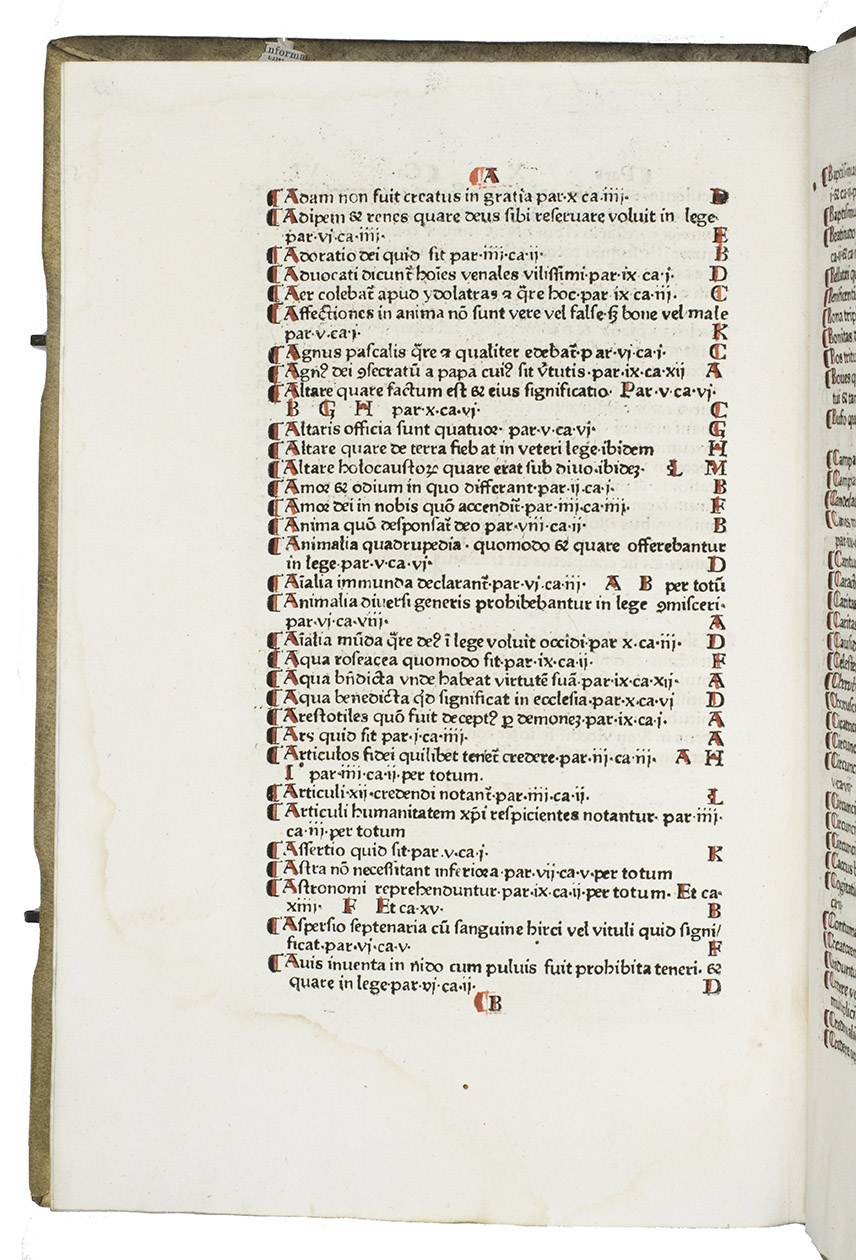 Informa
¶A
¶Adam non fuit creatus in gratia par·x ca·iiij· D
¶Adipem & renes quare deus sibi reseruare voluit in lege·
par·vj·ca·iiij· E
¶Adoratio dei quid sit par·iiij·ca·ij· B
¶Aduocati dicunt̄ hoīes venales vilissimi·par·ix ca·j· D
¶Aer colebat̄ apud ydolatras ⁊ q̄re hoc·par ix ca·iij· C
¶Affectiones in anima nō sunt vere vel false sꝫ bone vel male
par·v·ca·j· K
¶Agnus pascalis q̄re ⁊ qualiter edebat̄·p ar·vj·ca·j· C
¶Agnꝰ dei ꝯsecratū a papa cuiꝰ sit v̄tutis·par·ix·ca·xij A
¶Altare quare factum est & eius significatio· Par·v·ca·vj·
B G H par·x·ca·vj· C
¶Altaris officia sunt quatuor· par·v·ca·vj· G
¶Altare quare de terra fieb at in veteri lege·ibidem H
¶Altare holocaustoꝝ quare erat sub diuo·ibideꝫ· L M
¶Amor & odium in quo differant·par·ij·ca·j· B
¶Amor dei in nobis quō accendit̄·par·iiij·ca·iiij· F
¶Anima quō desponsat̄ deo par·viij·ca·ij· B
¶Animalia quadrupedia· quomodo & quare offerebantur
in lege·par·v·ca·vj· D
¶Aīalia immunda declarant̄·par·vj·ca·iij· A B per totū
¶Animalia diuersi generis prohibebantur in lege ꝯmisceri·
par·vj·ca·viij· A
¶Aīalia mūda q̄re deꝰ ī lege voluit occidi·par x·ca·iij· D
¶Aqua roseacea quomodo fit·par·ix·ca·ij· F
¶Aqua bn̄dicta vnde habeat virtutē suā·par·ix·ca·xij· A
¶Aqua benedicta qd̄ significat in ecclesia·par·x·ca·vj D
¶Arestotiles quō fuit deceptꝰ ꝑ demoneꝫ·par·ix·ca·j. A
¶Ars quid sit par·j·ca·iiij. A
¶Articulos fidei quilibet tenet̄ credere·par·iij·ca·iij· A H
I par·iiij·ca·ij·per totum.
¶Articuli·xij·credendi notant̄·par·iiij·ca·ij. L
¶Articuli humanitatem xp̄i respicientes notantur· par·iiij·
ca·iij·per totum
¶Assertio quid sit·par·v·ca·j· K
¶Astra nō necessitant inferiora·par·vij·ca·v·per totum
¶Astronomi reprehenduntur·par·ix·ca·ij·per totum· Et ca·
xiiij· F Et ca·xv· B
¶Aspersio septenaria cū sanguine hirci vel vituli quid signi/
ficat·par·vj·ca·v· F
¶Auis inuenta in nido cum puluis fuit prohibita teneri· &
quare in lege·par·vj·ca·ij· D
¶B